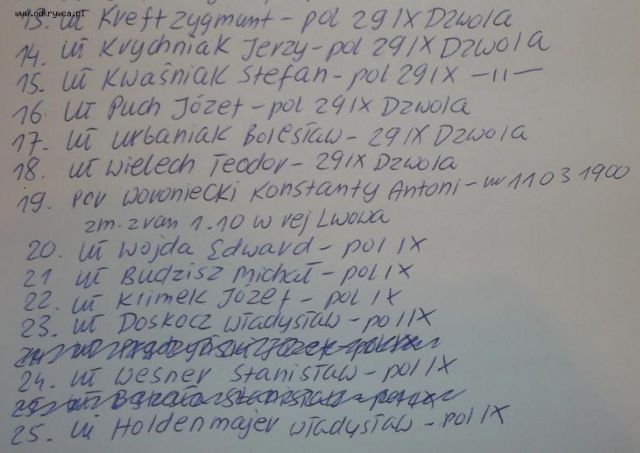 www.odkrywca.pl
13. uł Kreft Zygmunt - pol 29 IX Dzwola
14. uł Krychniak Jerzy - pol 29 IX Dzwola
15. uł Kwaśniak Stefan - pol 29 IX -11-
16. uł Puch Józef - pol 29 IX Dzwola
17. uł Urbaniak Bolesław - 29 IX Dzwola
18. uł Wielech Teodor - 29 IX Dzwola
19. por Woroniecki Konstanty Antoni - ur 11 03 1900
zm. z ran 1.10 w rej Lwowa
20. uł Wojda Edward - pol IX
21 uł Budzisz Michał - pol IX
22. uł Klimek Józef - pol IX
23. uł Doskocz Władysław - pol IX
24. uł Wesner Stanisław - pol IX
25. uł Holdenmajer Władysław - pol IX